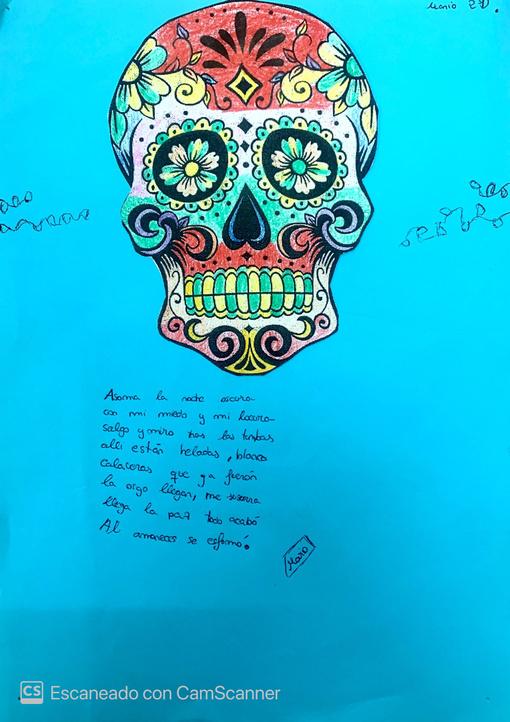 Mario 2ºD.
Asoma la noche oscura
con mi miedo y mi locura
salgo y miro tras las tumbas
allí están heladas, blancas
calaveras que ya fueron
la oigo llegar, me susurra
llega la paz todo acabó
Al amanecer se esfumó.
Mario
CS Escaneado con CamScanner